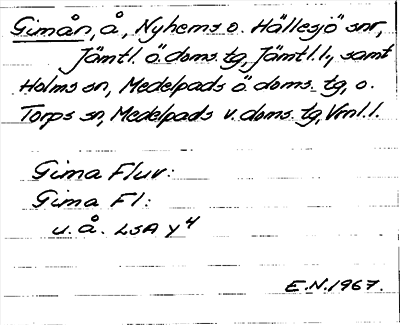 Gimån, å, Nyhems o. Hällesjö snr,
Jämtl. ö. doms. tg, Jämtl. l., samt
Holms sn, Medelpads ö. doms. tg, o.
Torps sn, Medelpads v. doms. tg, Vrnl. l.
Gima Fluv:
Gima Fl:
u. å. LSA Y 4
E.N. 1967.